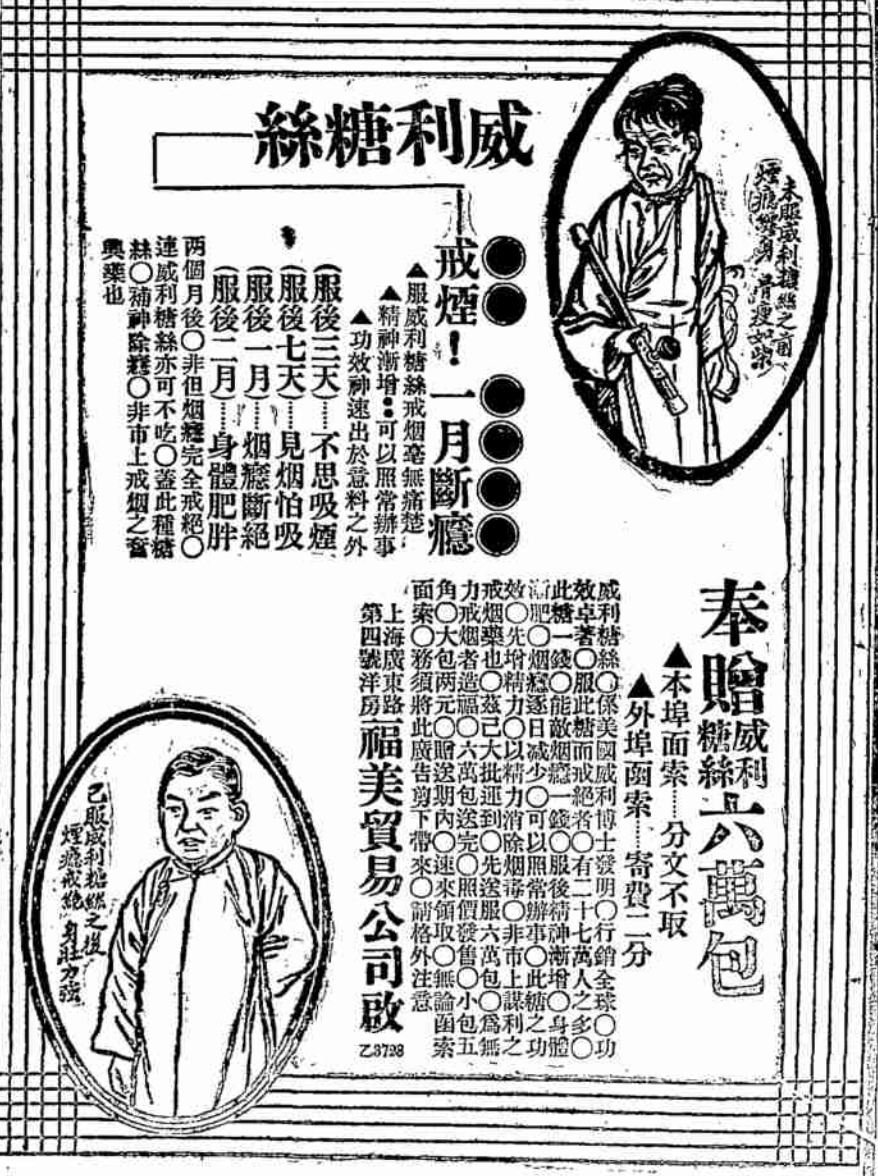 威利糖絲
未服威利糖絲之前
煙癮纏身 清瘦如柴
戒煙！一月斷癮
▲服威利糖絲戒烟毫無痛楚
▲精神漸增：可以照常辦事
▲功效神速出於意料之外
（服後三天）……不思吸煙
（服後七天）……見烟怕吸
（服後一月）……烟癮斷絕
（服後二月）……身體肥胖
两個月後〇非但烟癮完全戒絕〇
連威利糖絲亦可不吃〇蓋此種糖
絲〇補神除癮〇非市上戒烟之奮
興藥也
奉贈威利糖絲六萬包
▲本埠面索……分文不取
▲外埠函索……寄費二分
威利糖絲〇係美國威利博士發明〇行銷全球〇功
效卓著〇服此糖而戒絕者〇有二十七萬人之多〇
此糖一錢〇能敵烟癮一錢〇服後精神漸增〇身體
漸肥〇烟癮逐日减少〇可以照常辦事〇此糖之功
效〇先增精力〇以精力消除烟毒〇非市上謀利之
戒烟藥也〇茲已大批運到〇先送服六萬包〇爲無
力戒烟者造福〇六萬包送完〇照價發售〇小包五
角〇大包两元〇贈送期內〇速來領取〇無論函索
面索〇務須將此廣告剪下帶來〇請格外注意
上海廣東路
第四號洋房
福美貿易公司啟
乙3728
已服威利糖絲之後
煙癮戒絕 身壯力強